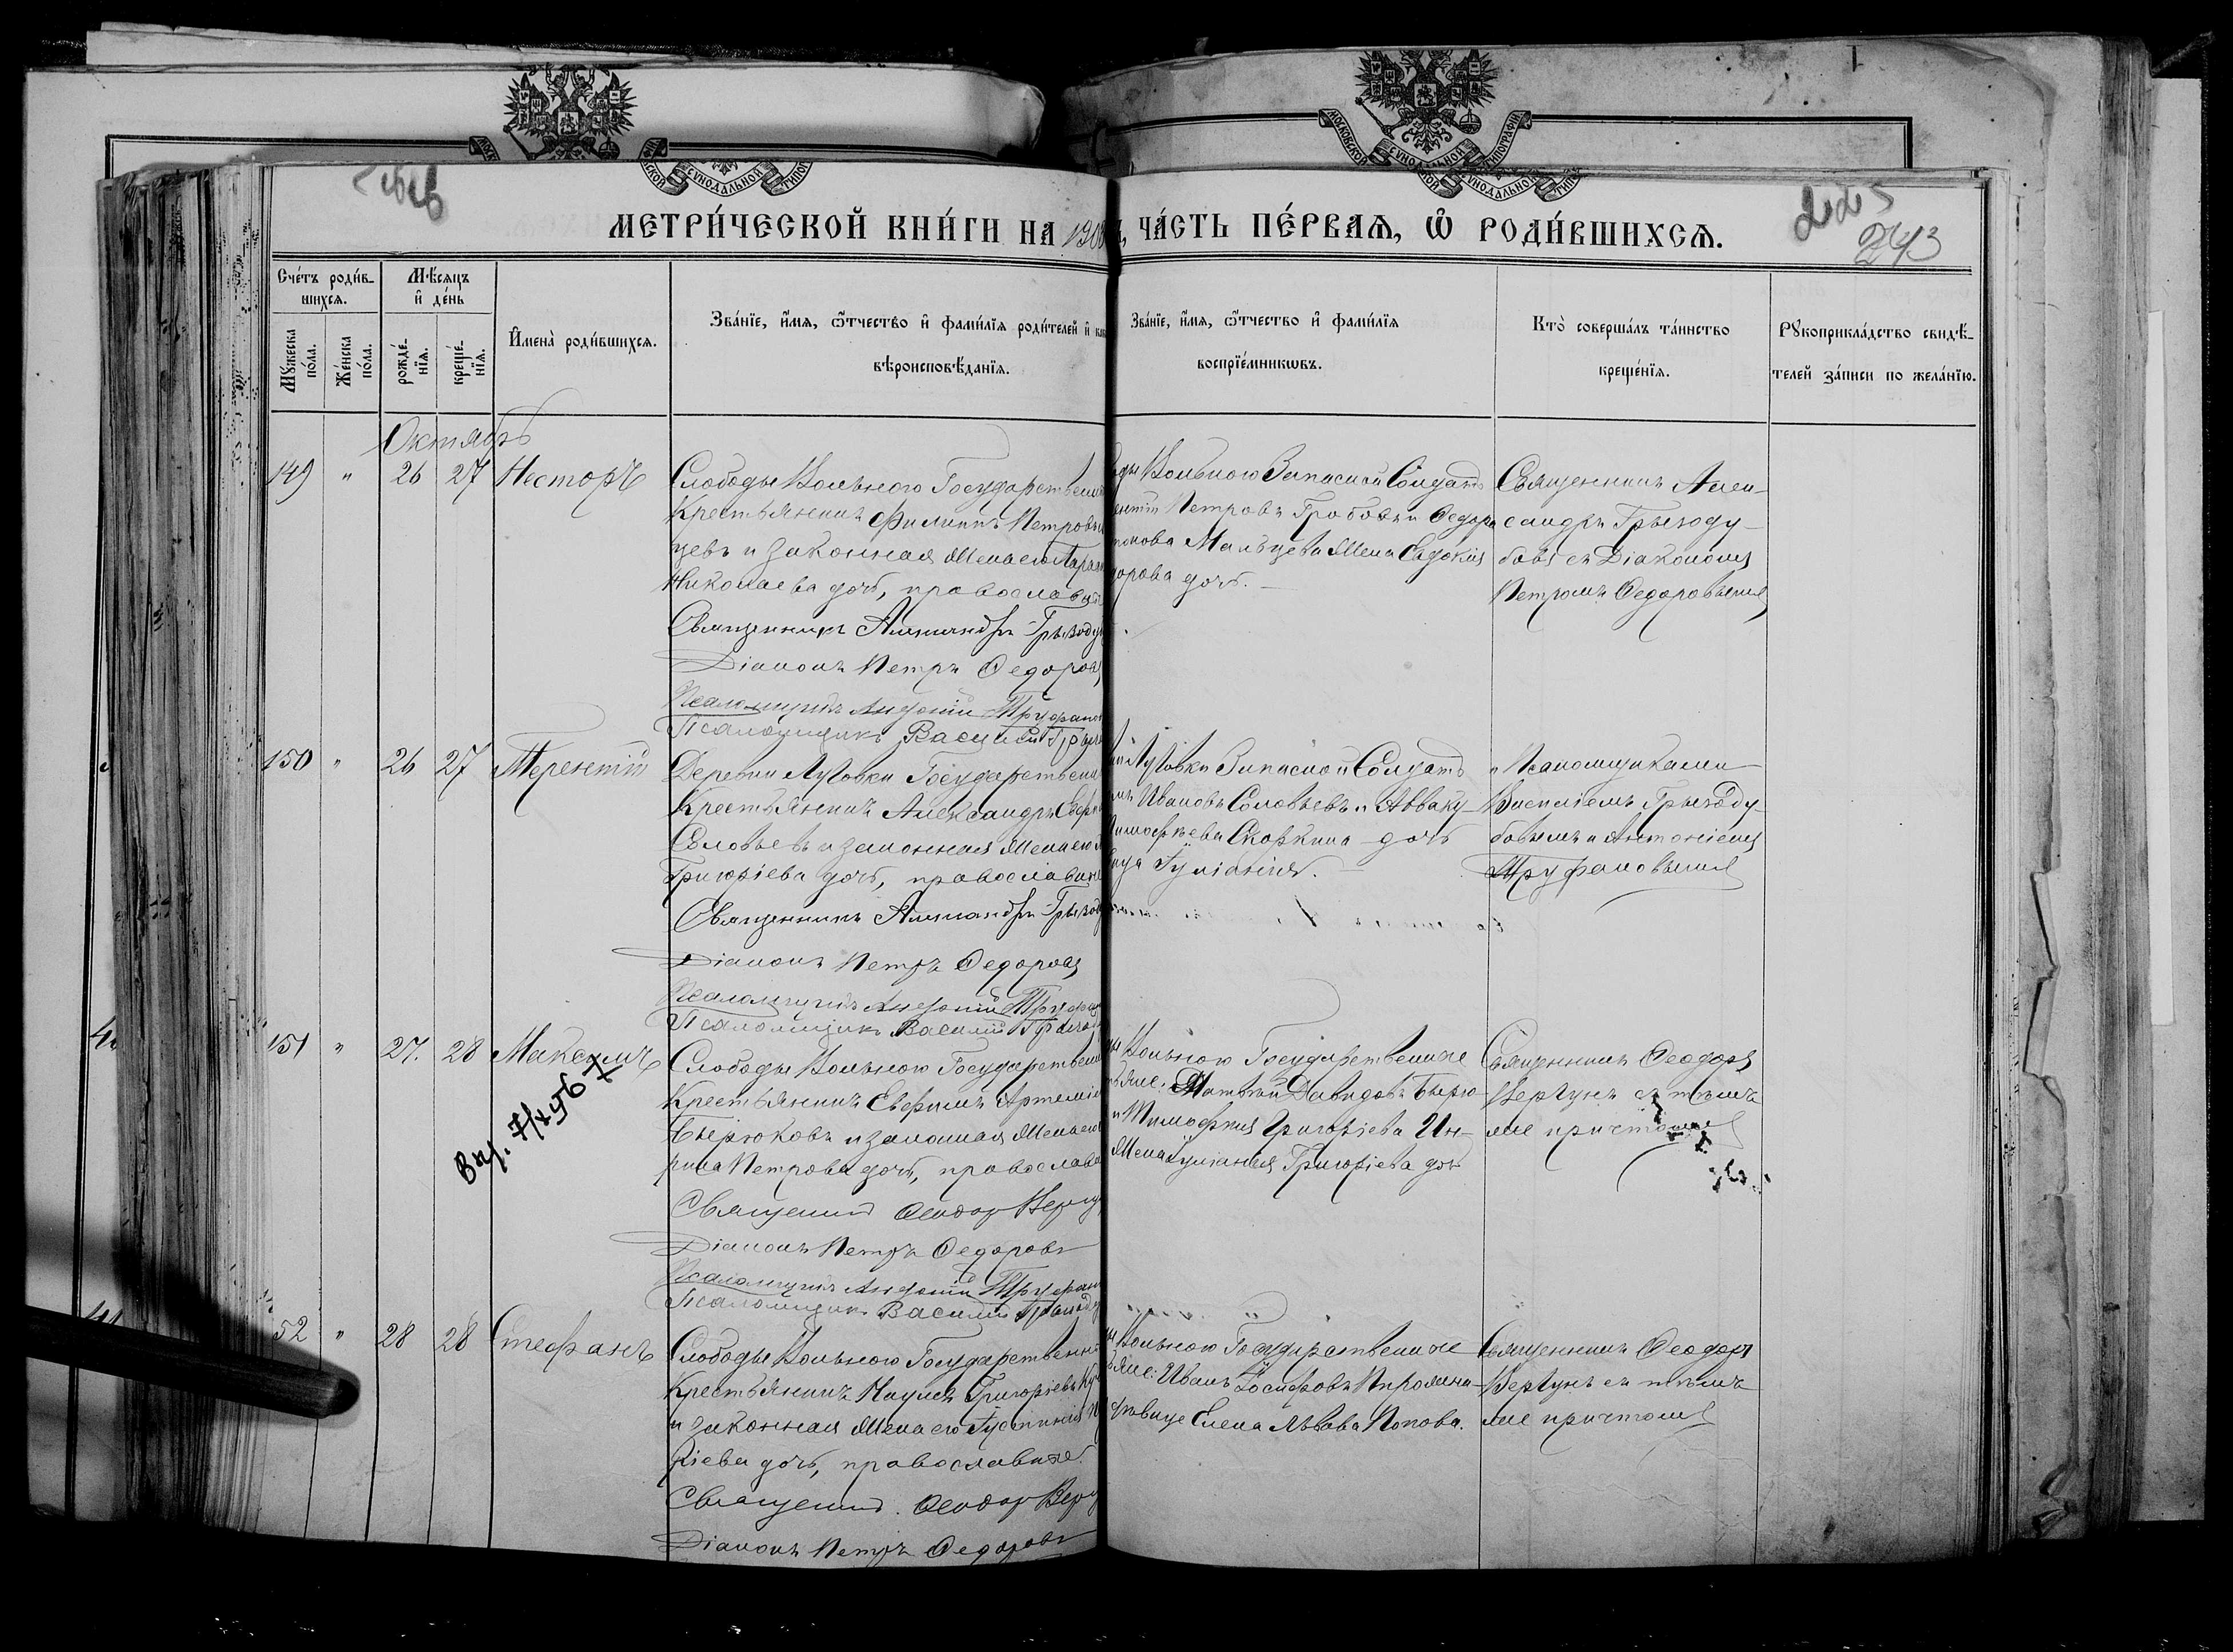 МОСКОВСКОЙ СУНОДАЛЬНОЙ ТИПОГРАФІИ
243
МЕТРИ́ЧЕСКОЙ КНИ́ГИ НА 190
ЧА́СТЬ ПЕ́РВАѦ, Ѡ РОДИ́ВШИХСѦ.
Сче́тъ роди́в-
шихсѧ.
Мѣ́сѧцъ
и де́нь
Мꙋ́жеска по́ла.
Же́нска по́ла.
рожде́-нїѧ.
креще́-нїѧ.
Имена̀ роди́вшихсѧ.
Зва́нїе, и́мѧ, ѻ́тчество и фами́лїѧ роди́телей и
вѣроисповѣ́данїѧ.
Зва́нїе, и́мѧ, ѻ́тчество и фами́лїѧ
воспрїе́мникѡвъ.
Кто̀ соверша́лъ та́инство
креще́нїѧ.
Рꙋкоприкла́дство свидѣ́-
телей за́писи по жела́нїю.
Октябрь
149 " 26 27 Несторъ
Слободы Вольного Государствен
Крестьянинъ Филиппъ Петровъ
цевъ и законная жена его Парас
Николаева дочь, православн
Священникъ Александръ Грызоду
Діаконъ Петръ Федоровъ
Псаломщикъ Антоній Труфано
Псаломщикъ Василій Грызо
Вольного Запасной Солдатъ
Петровъ Гробовъ и Федора
Мальцева жена Евдокія
дорова дочь.
Священникъ Алек-
сандръ Грызоду-
бовъ съ Діакономъ
Петромъ Федоровымъ
150 " 26 27 Терентій
Деревни Луговки Государствен
Крестьянинъ Александръ
Соловьевъ и законная жена его
Григоріева дочь, православн
Священникъ Александръ Грызод
Діаконъ Петръ Федоровъ
Псаломщикъ Антоній Труфан
Псаломщикъ Василій Грызод
Луговки Запасной Солдатъ
Ивановъ Соловьевъ и Авваку-
Тимофѣева Скоркина дочь
вица Гуліанія.
и Псаломщиками
Василіемъ Грызоду-
бовымъ и Антоніемъ
Труфановымъ
151 " 27. 28 Максимъ
Слободы Вольного Государствен
Крестьянинъ Евфимъ Артемі
Бирюковъ и законная жена его
рина Петрова дочь, православ
Священникъ Феодоръ Вергу
Діаконъ Петръ Федоровъ
Псаломщикъ Антоній Труфан
Псаломщикъ Василій Грызоду
Вольного Государственные
Матвѣй Давидовъ Бирю-
и Тимофея Григорьева Ин-
жена Гуліанія Григоріева дочь
Священникъ Феодоръ
Вергунъ съ тѣмъ
же причтомъ
52 " 28 28 Стефанъ
Слободы Вольного Государственны
Крестьянинъ Наумъ Григоріевъ
и законная жена его Іустинія
ріева дочь, православные.
Священникъ Феодоръ Вергу
Діаконъ Петръ Федоровъ
Вольного Государственные
Иванъ Іосифовъ
Елена Львова Попова.
Священникъ Феодоръ
Вергунъ съ тѣмъ
же причтомъ